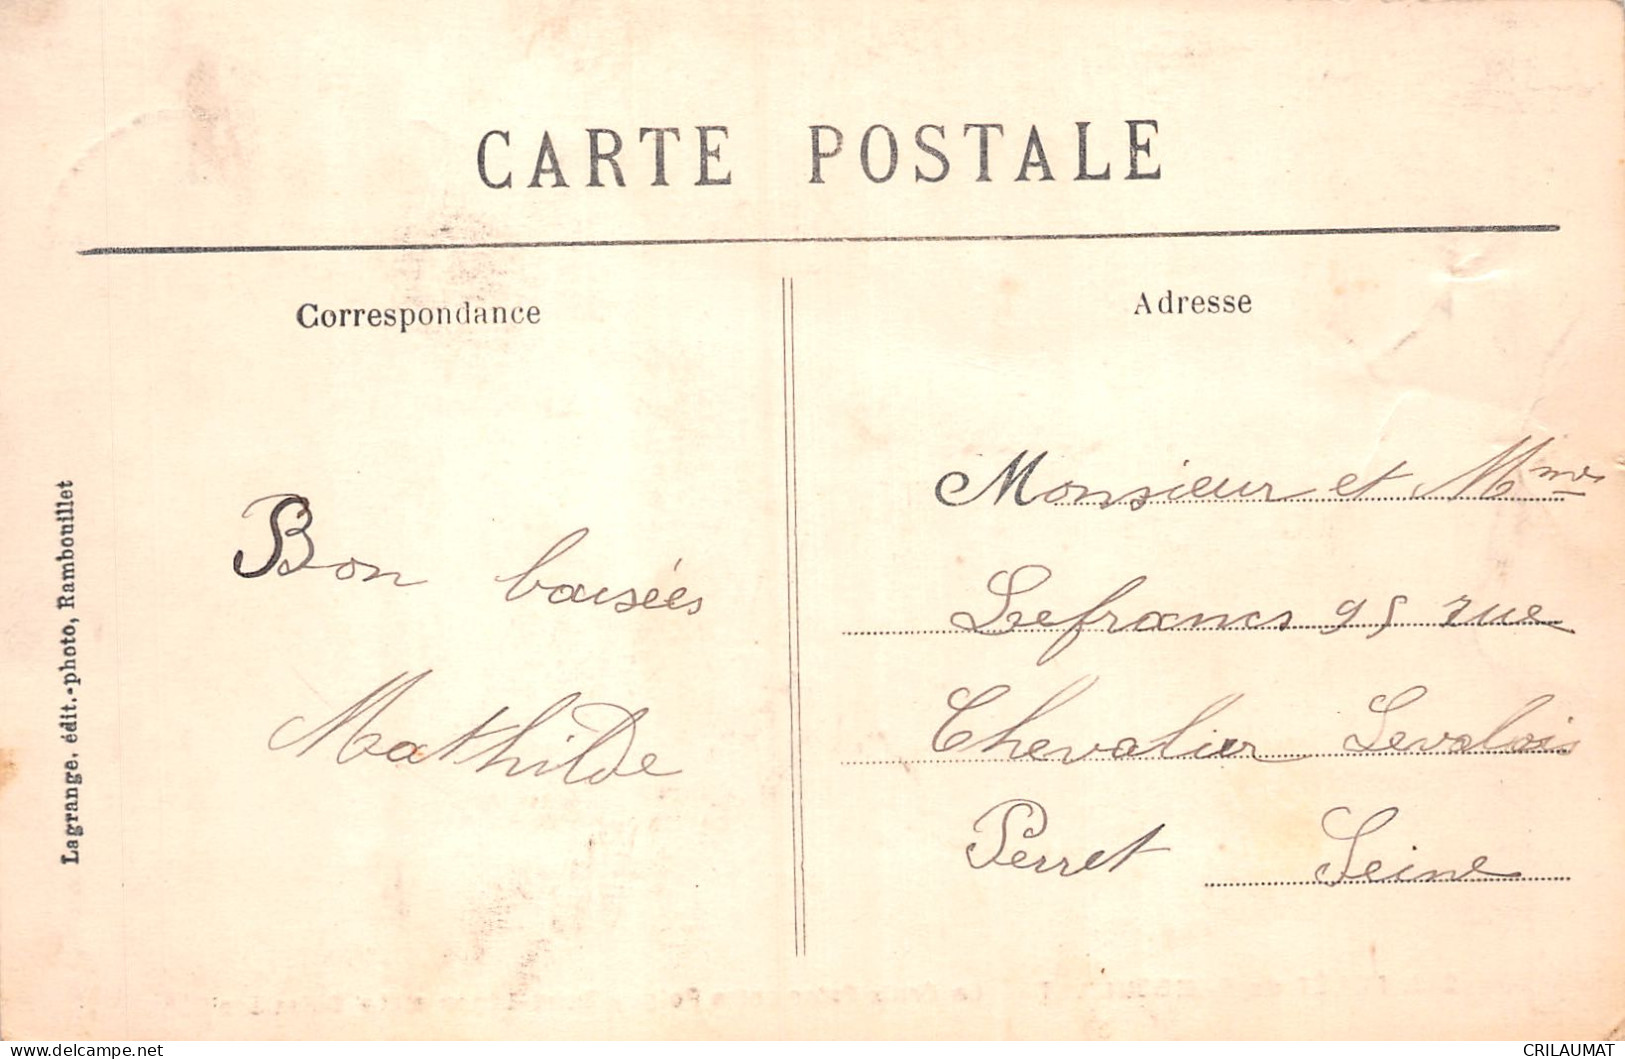 CARTE POSTALE
Correspondance
Adresse
Bon baisées
Mathilde
Monsieur et Mme
Lefrancs 95 rue
Chevalier Levalois
Perret Seine
Lagrange. édit.-photo, Rambouillet
CRILAUMAT